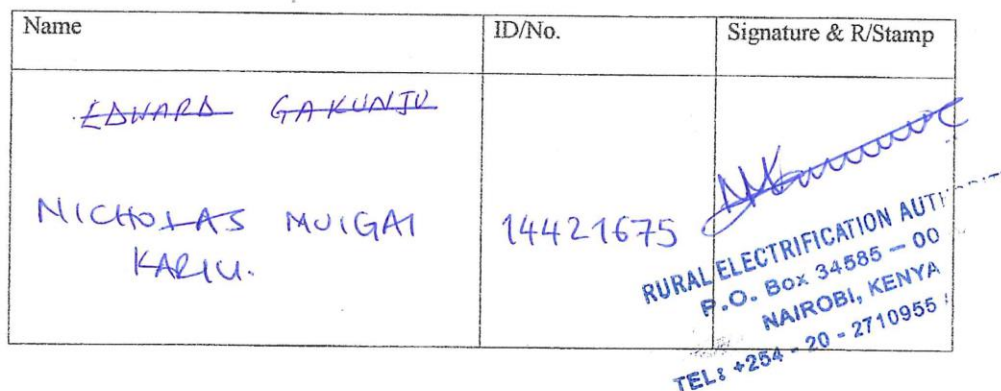 Name ID/No. Signature & R/Stamp
EDWARD GAKUNJU
NICHOLAS MUIGAI 14421675
KARIU.
RURAL ELECTRIFICATION
P.O. Box 34585 – 00
NAIROBI, KENYA
TEL: +254 - 20 - 2710955